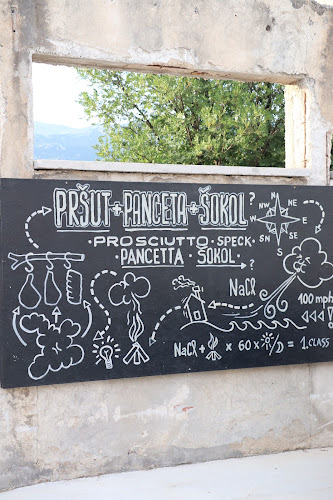 PRŠUT + PANCETA + ŠOKOL ?
PROSCIUTTO · SPECK ·
PANCETTA · ŠOKOL · ?
N
NW NE
W E
S
NaCl
100 mph
NaCl + × 60 × /D = 1.CLASS